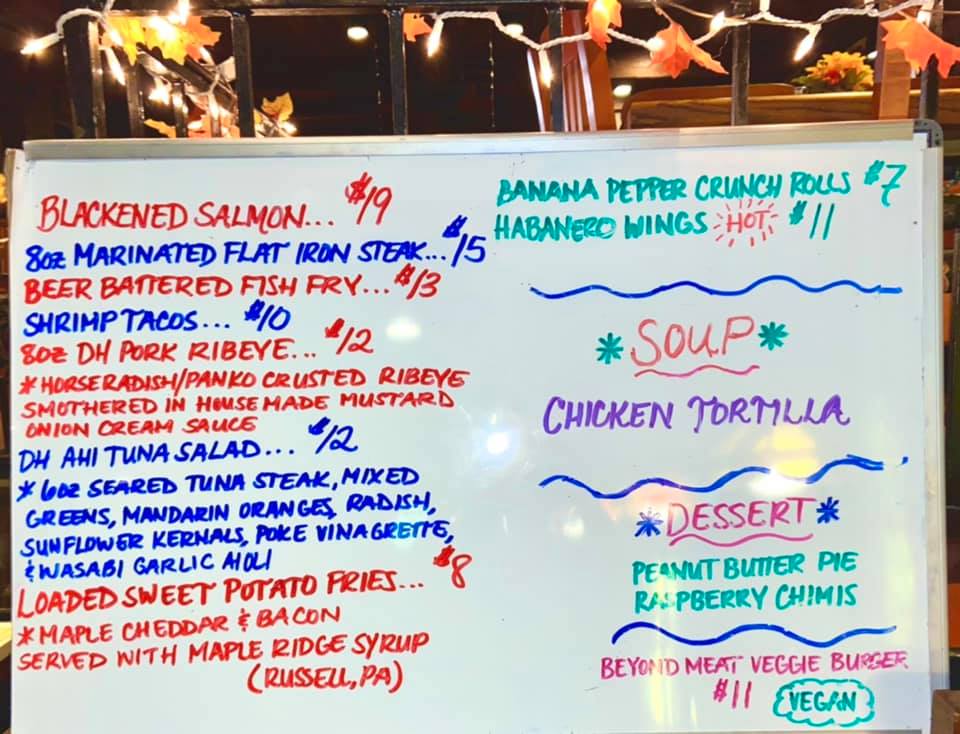 BLACKENED SALMON... $19
8oz MARINATED FLAT IRON STEAK... $15
BEER BATTERED FISH FRY... $13
SHRIMP TACOS... $10
8oz DH PORK RIBEYE... $12
*HORSERADISH/PANKO CRUSTED RIBEYE
SMOTHERED IN HOUSEMADE MUSTARD
ONION CREAM SAUCE
DH AHI TUNA SALAD... $12
*6oz SEARED TUNA STEAK, MIXED
GREENS, MANDARIN ORANGES, RADISH,
SUNFLOWER KERNALS, POKE VINAGRETTE,
& WASABI GARLIC AIOLI
LOADED SWEET POTATO FRIES... $8
*MAPLE CHEDDAR & BACON
SERVED WITH MAPLE RIDGE SYRUP
(RUSSELL, PA)
BANANA PEPPER CRUNCH ROLLS $7
HABANERO WINGS HOT $11
*SOUP*
CHICKEN TORTILLA
*DESSERT*
PEANUT BUTTER PIE
RASPBERRY CHIMIS
BEYOND MEAT VEGGIE BURGER
$11 VEGAN